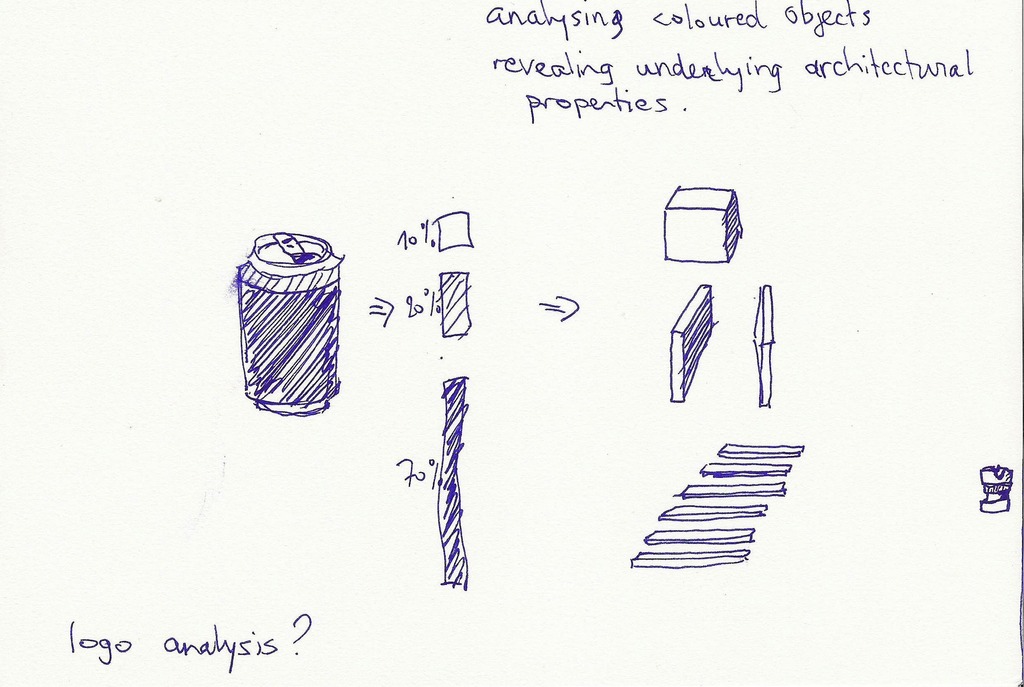 analysing coloured objects
revealing underlying architectural
properties.
10%
20%
70%
logo analysis?